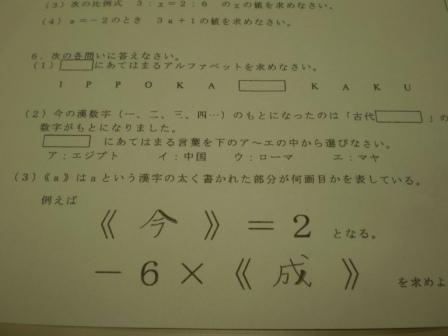 (3) 次の比例式 3:x=2:6 のxの値を求めなさい。
(4) a=-2のとき 3a+1の値を求めなさい。
6.次の各問いに答えなさい。
(1) にあてはまるアルファベットを求めなさい。
I P P O K A K A K U
(2) 今の漢数字(一、二、三、四…)のもとになったのは「古代 」の
数字がもとになりました。
にあてはまる言葉を下のア~エの中から選びなさい。
ア:エジプト イ:中国 ウ:ローマ エ:マヤ
(3) 《a》はaという漢字の太く書かれた部分が何画目かを表している。
例えば
《 今 》=2 となる。
-6×《 成 》 を求めよ